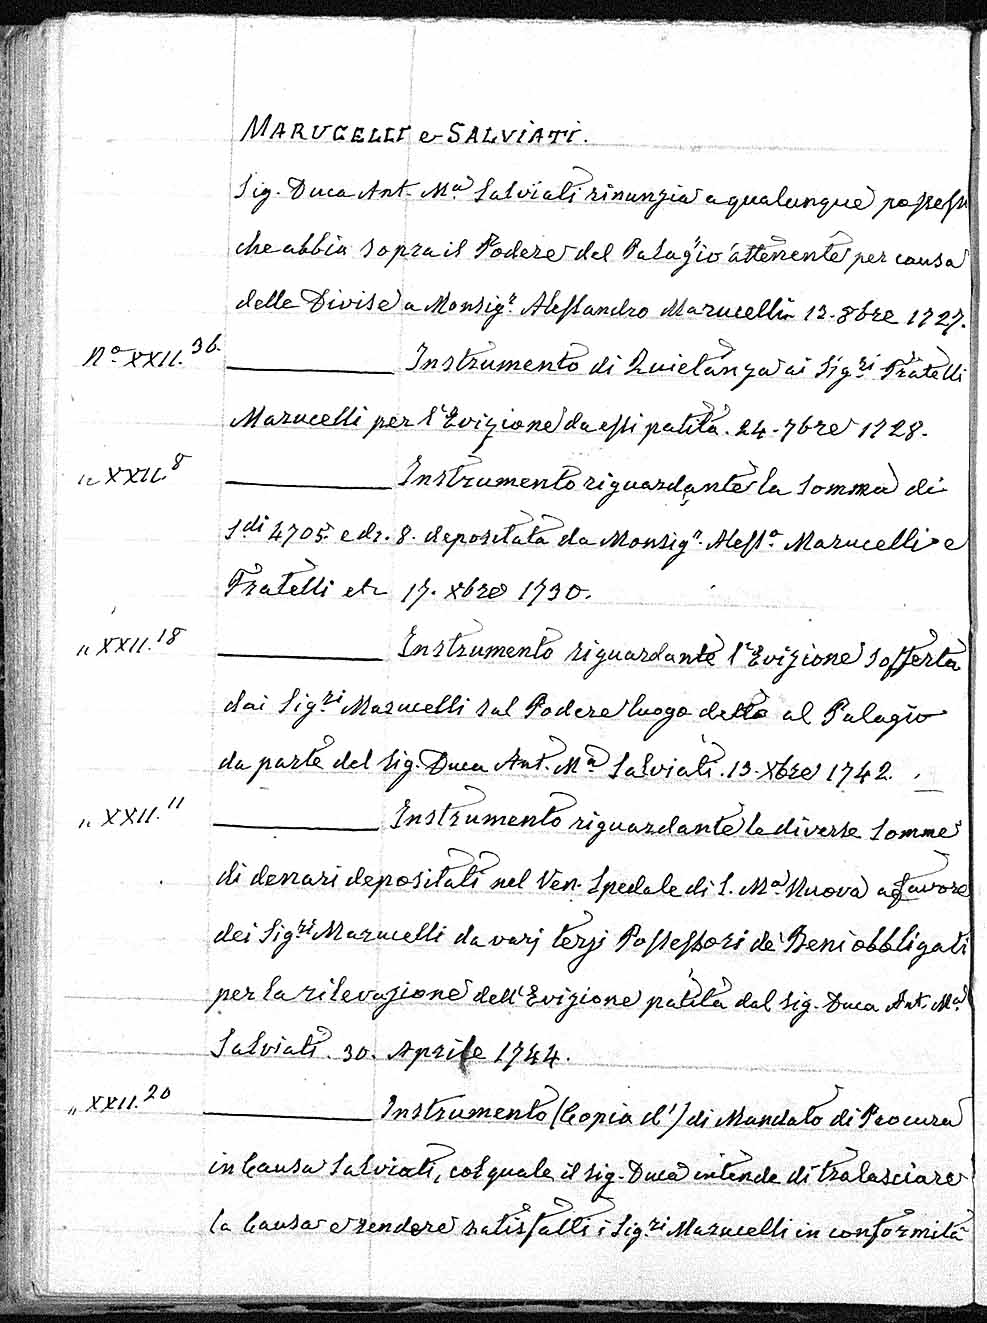 MARUCELLI e SALVIATI.
Sig. Duca Ant. Mª Salviati rinunzia a qualunque possesso
che abbia sopra il Podere del Palagio attenente per causa
delle Divise a Monsigʳ Alessandro Marucelli 13. 8bre 1727.
Nº XXII.36. ——— Instrumento di Quietanza ai Sigʳⁱ Fratelli
Marucelli per l'Evizione da essi patita. 24. 7bre 1728.
„ XXII.8 ——— Instrumento riguardante la Somma di
Sᵈⁱ 4705. e dr. 8. depositata da Monsigʳ Alessº Marucelli e
Fratelli etc 17. Xbre 1730.
„ XXII.18 ——— Instrumento riguardante l'Evizione Sofferta
dai Sigʳⁱ Marucelli sul Podere luogo detto al Palagio
da parte del Sig. Duca Ant. Mª Salviati. 13. Xbre 1742.
„ XXII.11 ——— Instrumento riguardante le diverse Somme
di denari depositati nel Ven. Spedale di S. Mª Nuova a favore
dei Sigʳⁱ Marucelli da varj terzi Possessori de' Beni obbligati
per la rilevazione dell'Evizione patita dal Sig. Duca Ant. Mª
Salviati. 30. Aprile 1744.
„ XXII.20 ——— Instrumento (Copia d') di Mandato di Procura
in Causa Salviati, col quale il Sig. Duca intende di tralasciare
la Causa e rendere satisfatti i Sigʳⁱ Marucelli in conformità